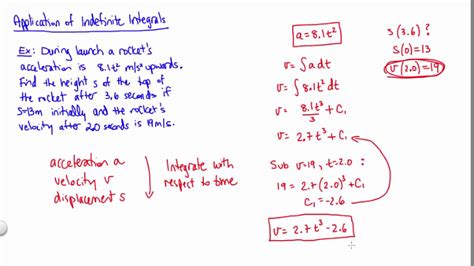 Application of Indefinite Integrals
Ex: During launch a rocket's
acceleration is 8.1t² m/s² upwards.
Find the height s of the top of
the rocket after 3.6 seconds if
s=13m initially and the rocket's
velocity after 2.0 seconds is 19m/s.
acceleration a
velocity v
displacement s
Integrate with
respect to time
a=8.1t²
v = ∫a dt
v = ∫8.1t² dt
v = 8.1t³/3 + C₁
v = 2.7t³+C₁
Sub v=19, t=2.0 :
19 = 2.7(2.0)³+C₁
C₁ = -2.6
v = 2.7t³-2.6
s(3.6) ?
s(0)=13
v(2.0)=19